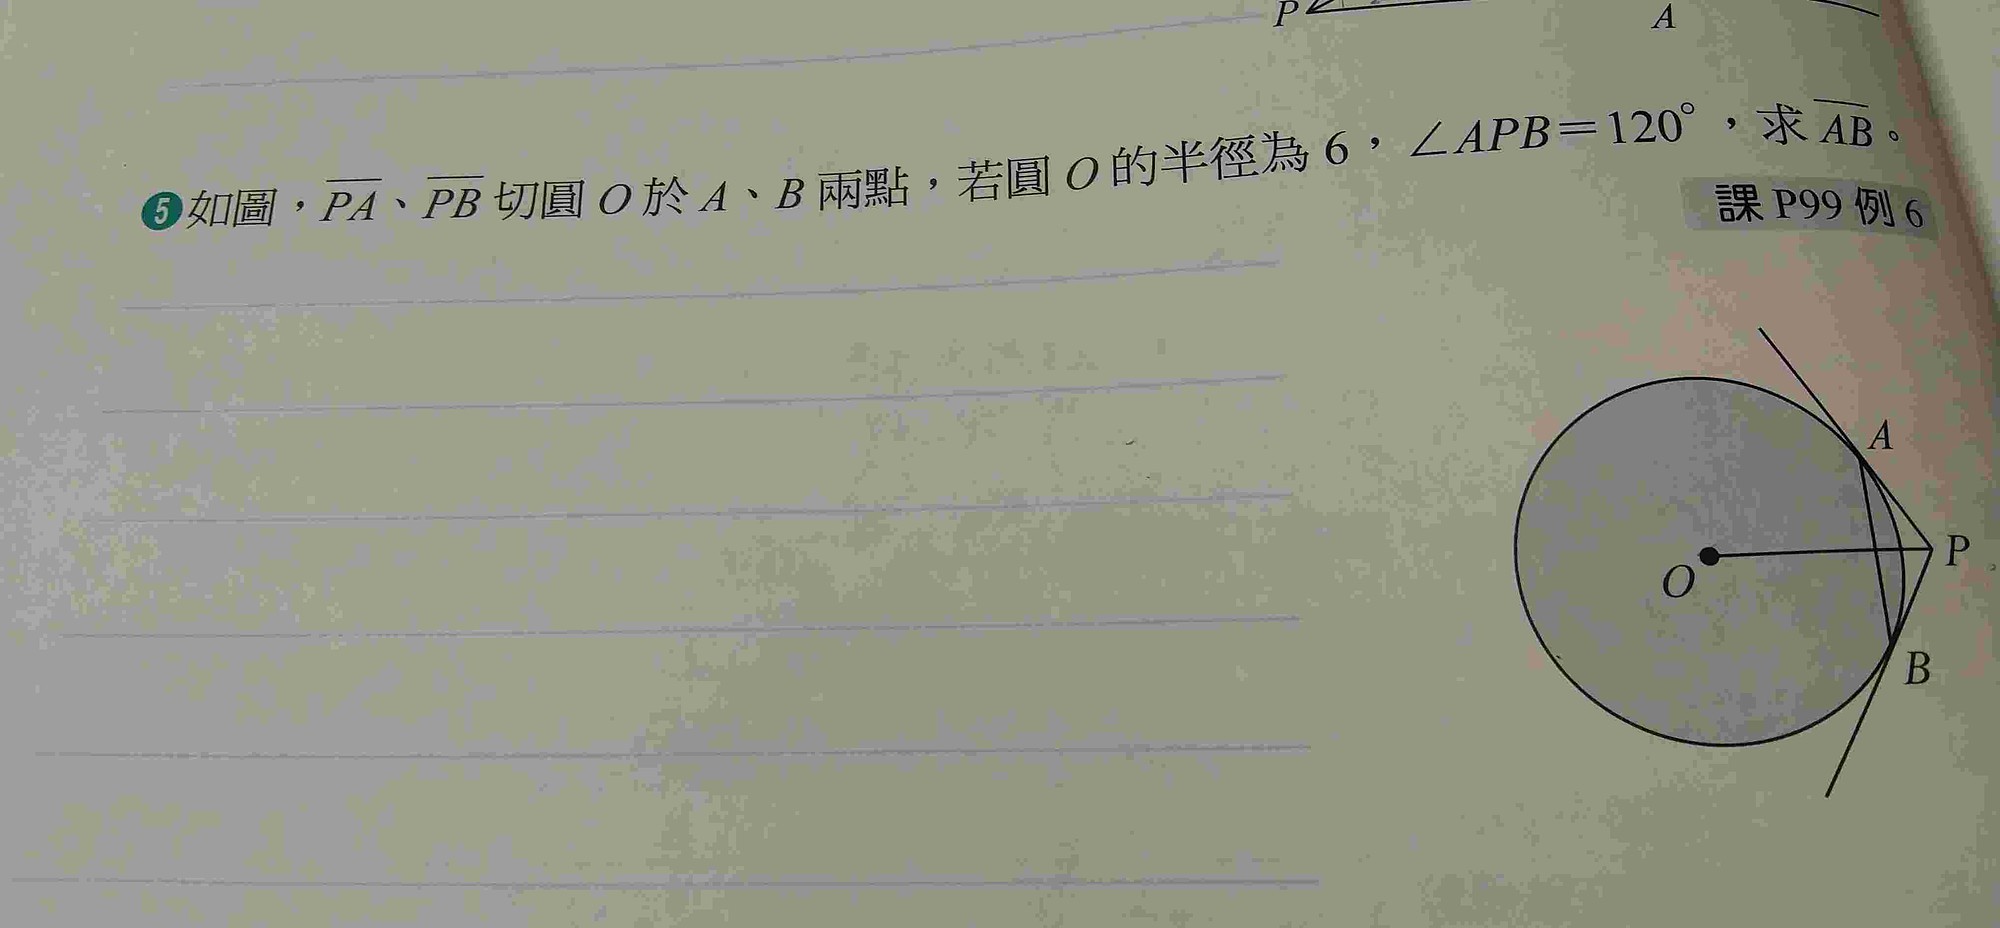 P
A
❺如圖，PA、PB切圓O於A、B兩點，若圓O的半徑為6，∠APB＝120°，求AB。
課P99例6
A
P
O
B